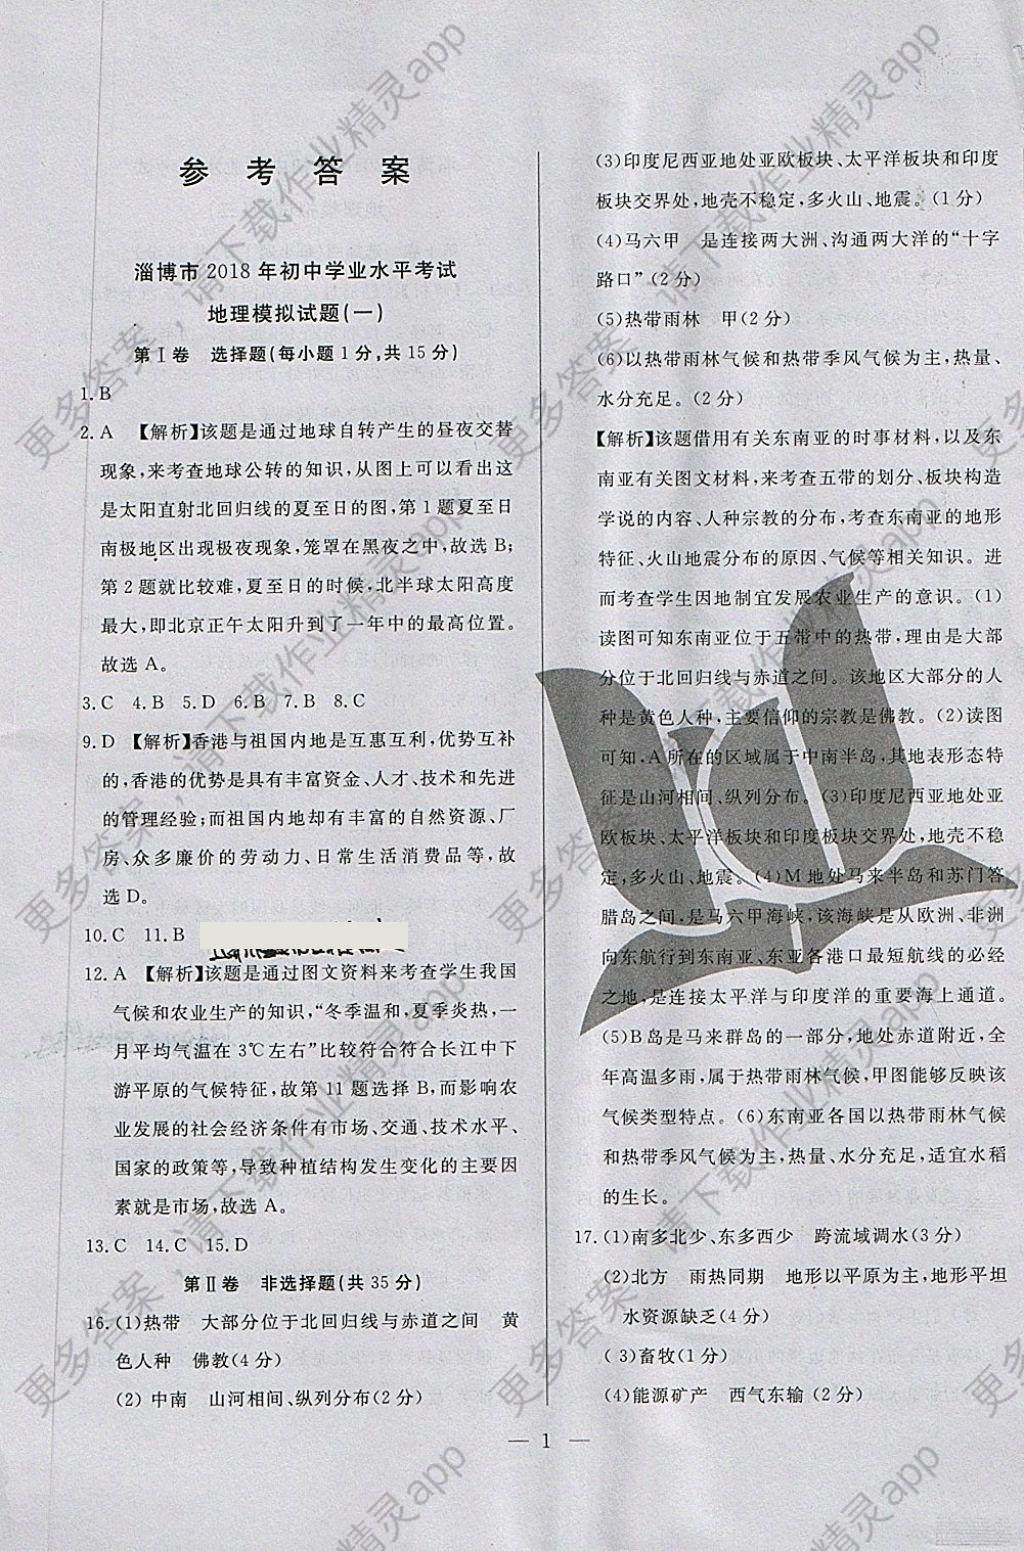 参考答案
淄博市 2018 年初中学业水平考试
地理模拟试题(一)
第Ⅰ卷 选择题(每小题 1 分,共 15 分)
1. B
2. A 【解析】该题是通过地球自转产生的昼夜交替
现象,来考查地球公转的知识,从图上可以看出这
是太阳直射北回归线的夏至日的图,第 1 题夏至日
南极地区出现极夜现象,笼罩在黑夜之中,故选 B;
第 2 题就比较难,夏至日的时候,北半球太阳高度
最大,即北京正午太阳升到了一年中的最高位置。
故选 A。
3. C 4. B 5. D 6. B 7. B 8. C
9. D 【解析】香港与祖国内地是互惠互利,优势互补
的,香港的优势是具有丰富资金、人才、技术和先进
的管理经验;而祖国内地却有丰富的自然资源、厂
房、众多廉价的劳动力、日常生活消费品等,故
选 D。
10. C 11. B
12. A 【解析】该题是通过图文资料来考查学生我国
气候和农业生产的知识,“冬季温和,夏季炎热,一
月平均气温在 3℃左右”比较符合符合长江中下
游平原的气候特征,故第 11 题选择 B,而影响农
业发展的社会经济条件有市场、交通、技术水平、
国家的政策等,导致种植结构发生变化的主要因
素就是市场,故选 A。
13. C 14. C 15. D
第Ⅱ卷 非选择题(共 35 分)
16. (1)热带 大部分位于北回归线与赤道之间 黄
色人种 佛教(4 分)
(2) 中南 山河相间、纵列分布(2 分)
(3)印度尼西亚地处亚欧板块、太平洋板块和印度
板块交界处,地壳不稳定,多火山、地震。(1 分)
(4)马六甲 是连接两大洲、沟通两大洋的“十字
路口”(2 分)
(5)热带雨林 甲(2 分)
(6)以热带雨林气候和热带季风气候为主,热量、
水分充足。(2 分)
【解析】该题借用有关东南亚的时事材料,以及东
南亚有关图文材料,来考查五带的划分、板块构造
学说的内容、人种宗教的分布,考查东南亚的地形
特征、火山地震分布的原因、气候等相关知识。进
而考查学生因地制宜发展农业生产的意识。(1)
读图可知东南亚位于五带中的热带,理由是大部
分位于北回归线与赤道之间。该地区大部分的人
种是黄色人种,主要信仰的宗教是佛教。(2)读图
可知,A 所在的区域属于中南半岛,其地表形态特
征是山河相间、纵列分布。(3)印度尼西亚地处亚
欧板块、太平洋板块和印度板块交界处,地壳不稳
定,多火山、地震。(4)M 地处马来半岛和苏门答
腊岛之间,是马六甲海峡,该海峡是从欧洲、非洲
向东航行到东南亚、东亚各港口最短航线的必经
之地,是连接太平洋与印度洋的重要海上通道。
(5)B 岛是马来群岛的一部分,地处赤道附近,全
年高温多雨,属于热带雨林气候,甲图能够反映该
气候类型特点。(6)东南亚各国以热带雨林气候
和热带季风气候为主,热量、水分充足,适宜水稻
的生长。
17. (1)南多北少、东多西少 跨流域调水(3 分)
(2)北方 雨热同期 地形以平原为主,地形平坦
水资源缺乏(4 分)
(3)畜牧(1 分)
(4)能源矿产 西气东输(2 分)
— 1 —
更多答案,请下载作业精灵app
更多答案,请下载作业精灵app
更多答案,请下载作业精灵app
更多答案,请下载作业精灵app
更多答案,请下载作业精灵app
更多答案,请下载作业精灵app